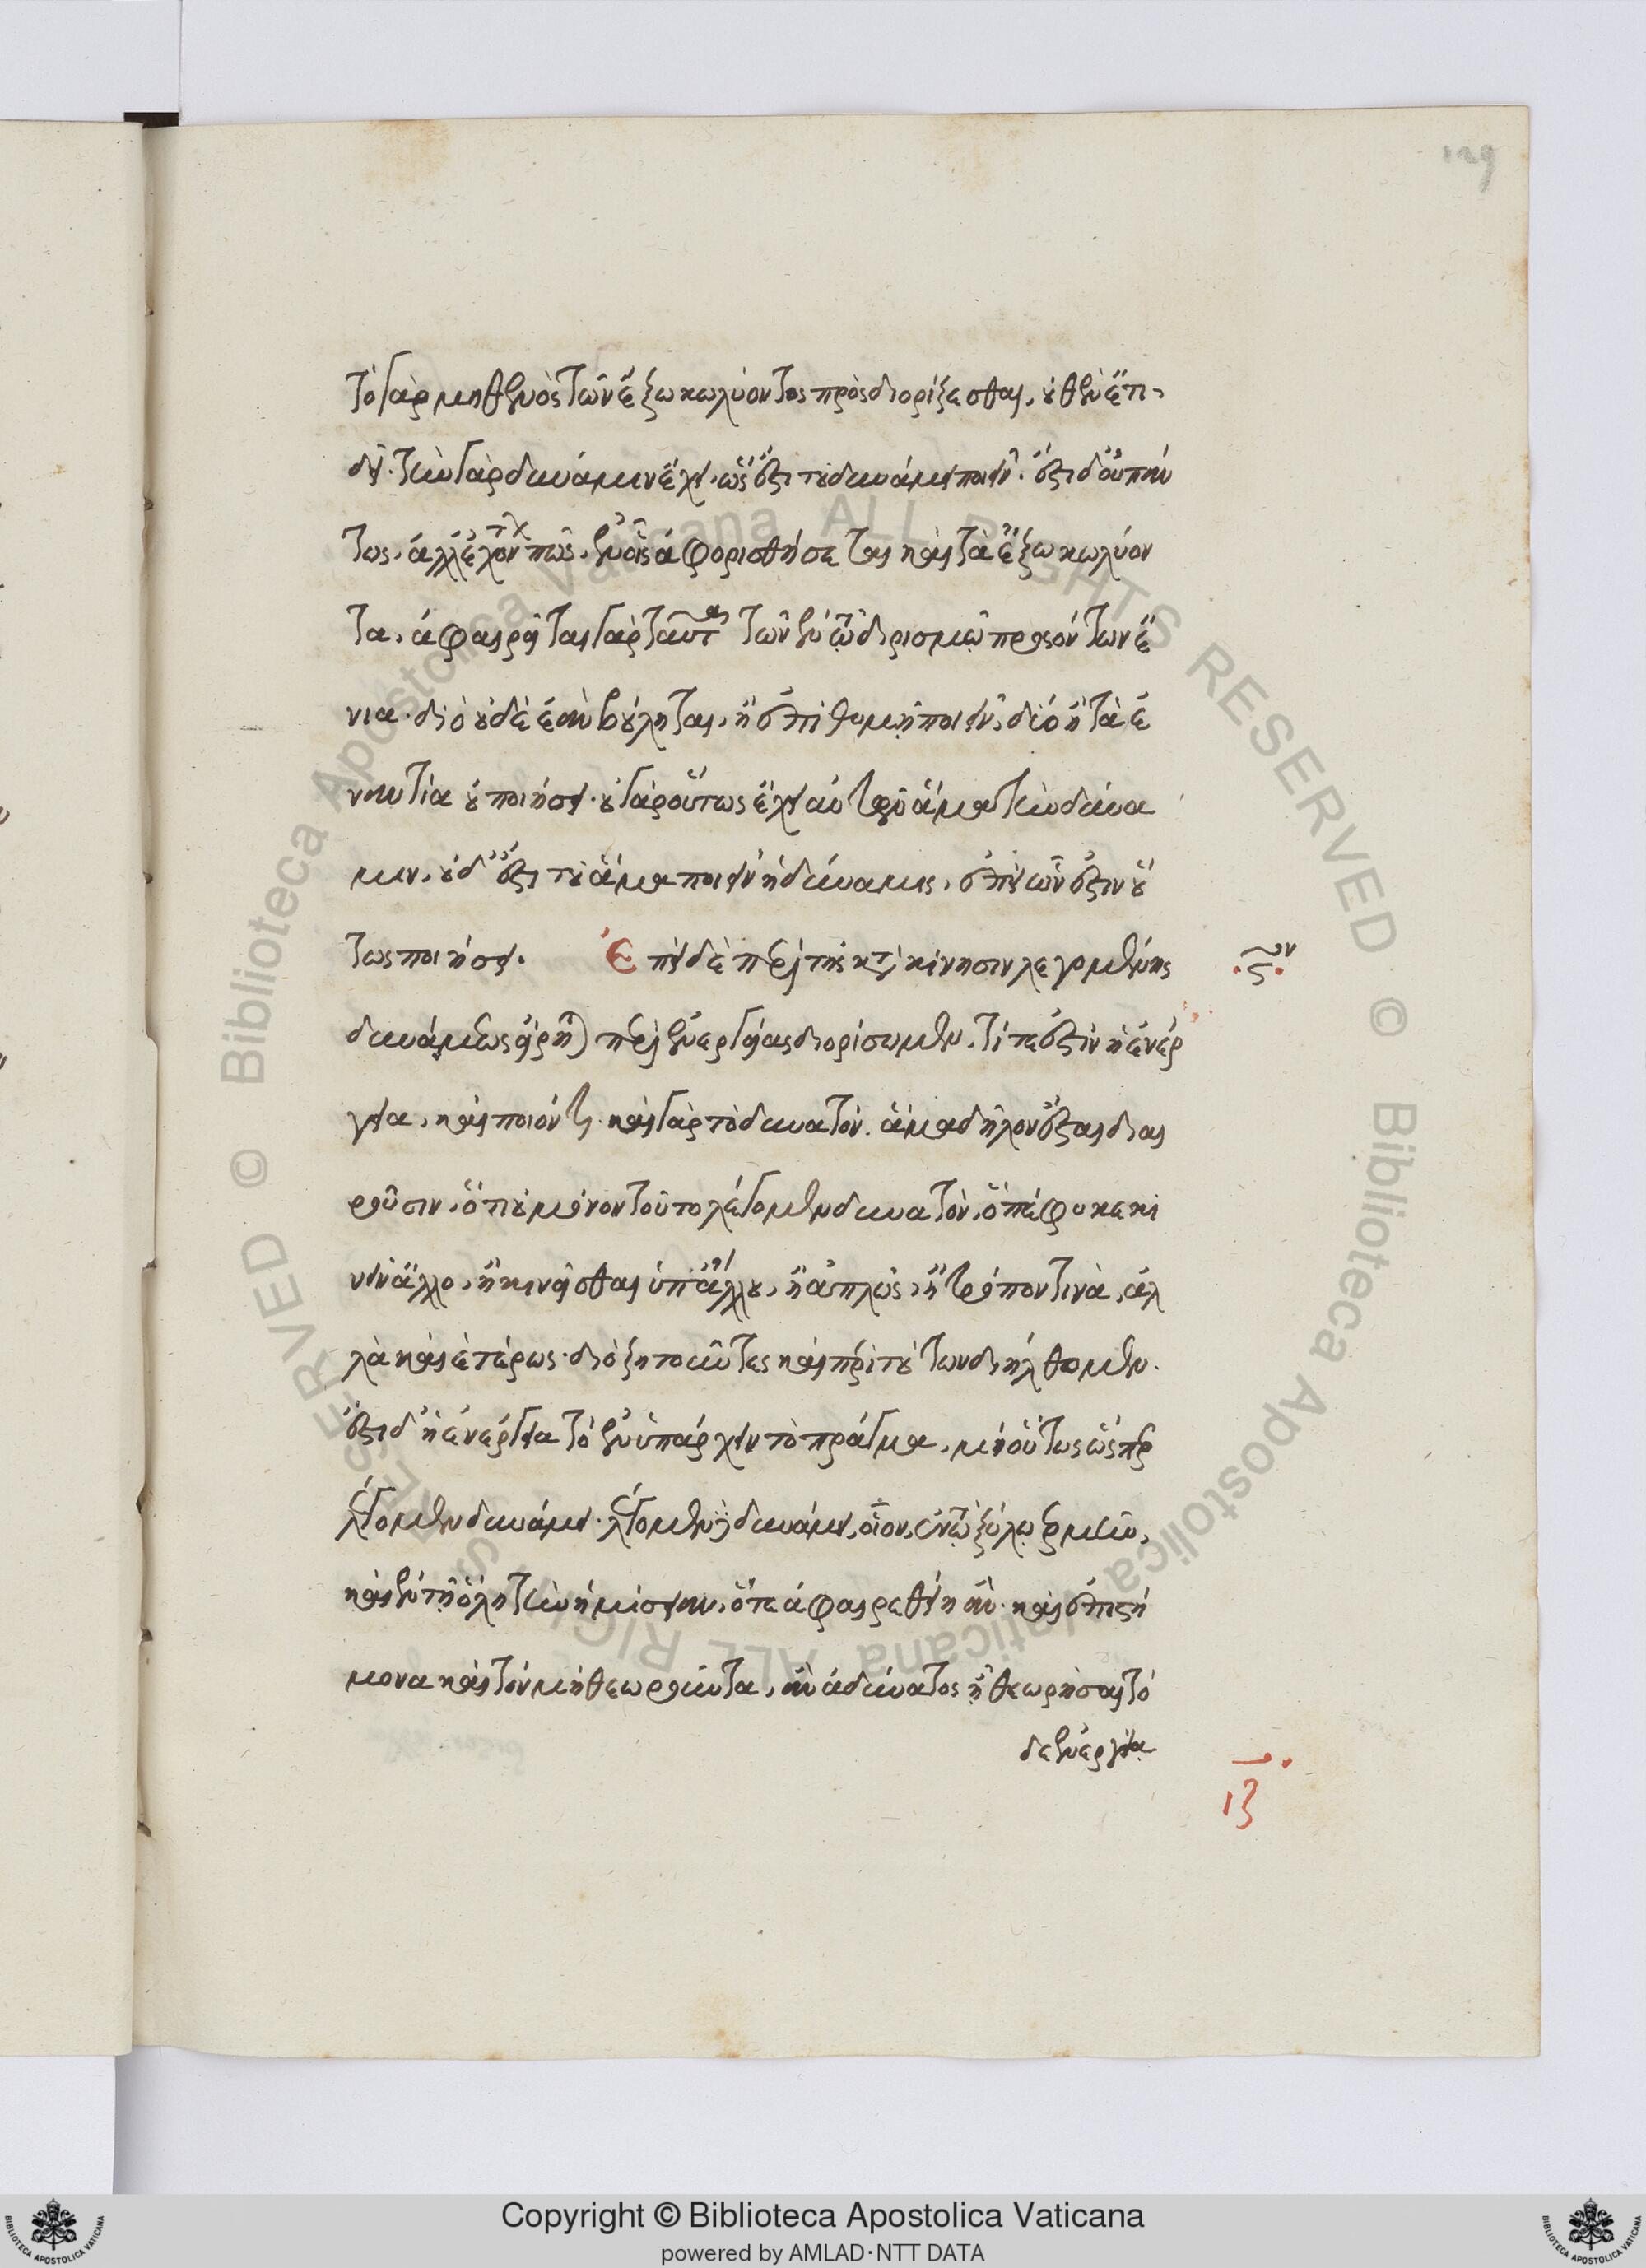 129
τὸ γὰρ μηθενὸς τῶν ἔξω κωλύοντος προσδιορίζεσθαι, οὐθὲν ἔτι
δεῖ. τὴν γὰρ δύναμιν ἔχει, ὡς ἔστι τοῦ δυνάμει ποιεῖν. ἔστι δ' οὐ πάν
τως, ἀλλ' ἐχόντων πῶς. ἐν οἷς ἀφορισθήσεται καὶ τὰ ἔξω κωλύον
τα, ἀφαιρεῖται γὰρ ταῦτα τῶν ἐν τῷ διορισμῷ προσόντων ἔ
νια. διὸ οὐδὲ ἐὰν βούληται, ἢ ἐπιθυμῇ ποιεῖν, δύο ἢ τὰ ἐ
ναντία οὐ ποιήσει. οὐ γὰρ οὕτως ἔχει αὐτῶν ἅμα τὴν δύνα
μιν, οὐδ' ἔστι τοῦ ἅμα ποιεῖν ἡ δύναμις, ἐπεὶ ὧν ἐστιν οὕ
τως ποιήσει. Ἐπεὶ δὲ περὶ τῆς κατὰ κίνησιν λεγομένης
ς̄ον
δυνάμεως εἴρηται περὶ ἐνεργείας διορίσωμεν. τί τέ ἐστιν ἡ ἐνέρ
γεια, καὶ ποῖόν τι. καὶ γὰρ τὸ δυνατὸν ἅμα δῆλον ἔσται διαι
ροῦσιν, ὅτι οὐ μόνον τοῦτο λέγομεν δυνατὸν, ὃ πέφυκε κι
νεῖν ἄλλο, ἢ κινεῖσθαι ὑπ' ἄλλου, ἢ ἁπλῶς, ἢ τρόπον τινὰ, ἀλ
λὰ καὶ ἑτέρως. διὸ ζητοῦντες καὶ περὶ τούτων διήλθομεν.
ἔστι δ' ἡ ἐνέργεια τὸ ἐνυπάρχειν τὸ πρᾶγμα, μὴ οὕτως ὥσπερ
λέγομεν δυνάμει. λέγομεν δὲ δυνάμει, οἷον, ἐν τῷ ξύλῳ ἑρμῆν,
καὶ ἐν τῇ ὅλῃ τὴν ἡμίσειαν, ὅτε ἀφαιρεθείη ἄν. καὶ ἐπιστή
μονα καὶ τὸν μὴ θεωροῦντα, ἂν ἀδύνατος ᾖ θεωρῆσαι τὸ
δὲ ἐνεργείᾳ
ιζ
Copyright © Biblioteca Apostolica Vaticana
powered by AMLAD·NTT DATA